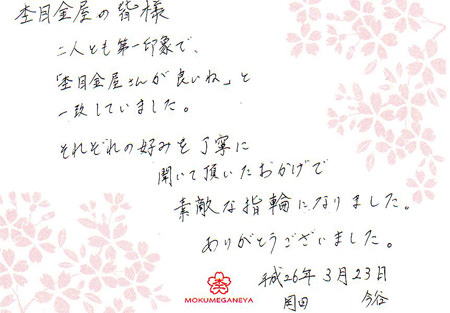 杢目金屋の皆様
二人とも第一印象で、
「杢目金屋さんが良いね」と
一致していました。
それぞれの好みを丁寧に
聞いて頂いたおかげで
素敵な指輪になりました。
ありがとうございました。
平成26年 3月23日
MOKUMEGANEYA
岡田 今谷